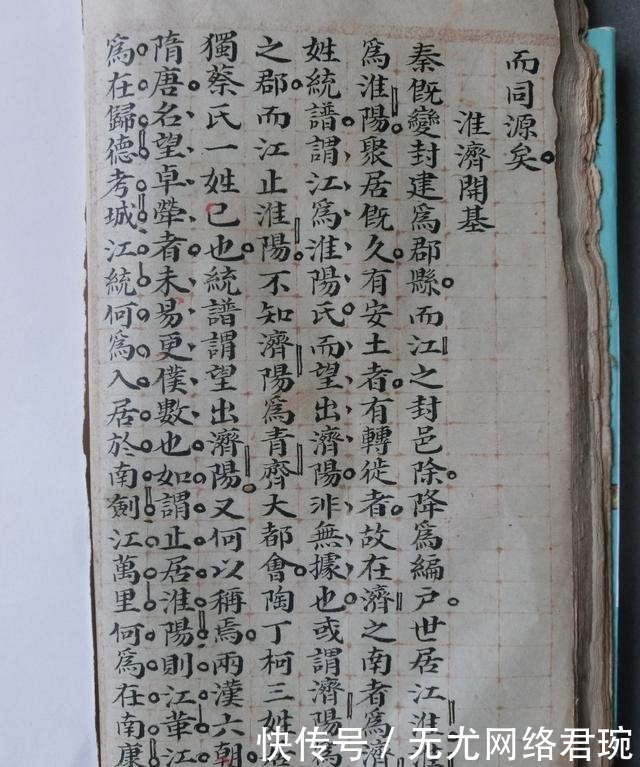 而同源矣
淮濟開基
秦旣變封建爲郡縣而江之封邑除降爲編戸世居江淮
爲淮陽聚居旣久有安土者有轉徙者故在濟之南者爲濟
姓統譜謂江爲淮陽氏而望出濟陽非無據也或謂濟陽爲
之郡而江止淮陽不知濟陽爲青齊大都會陶丁柯三姓
獨蔡氏一姓已也統譜謂望出濟陽又何以稱焉兩漢六朝
隋唐名望卓犖者未易更僕數也如謂止居淮陽則江華江
爲在歸德考城江統何爲入居於南劍江萬里何爲在南康
快传号/无尤网络君琬